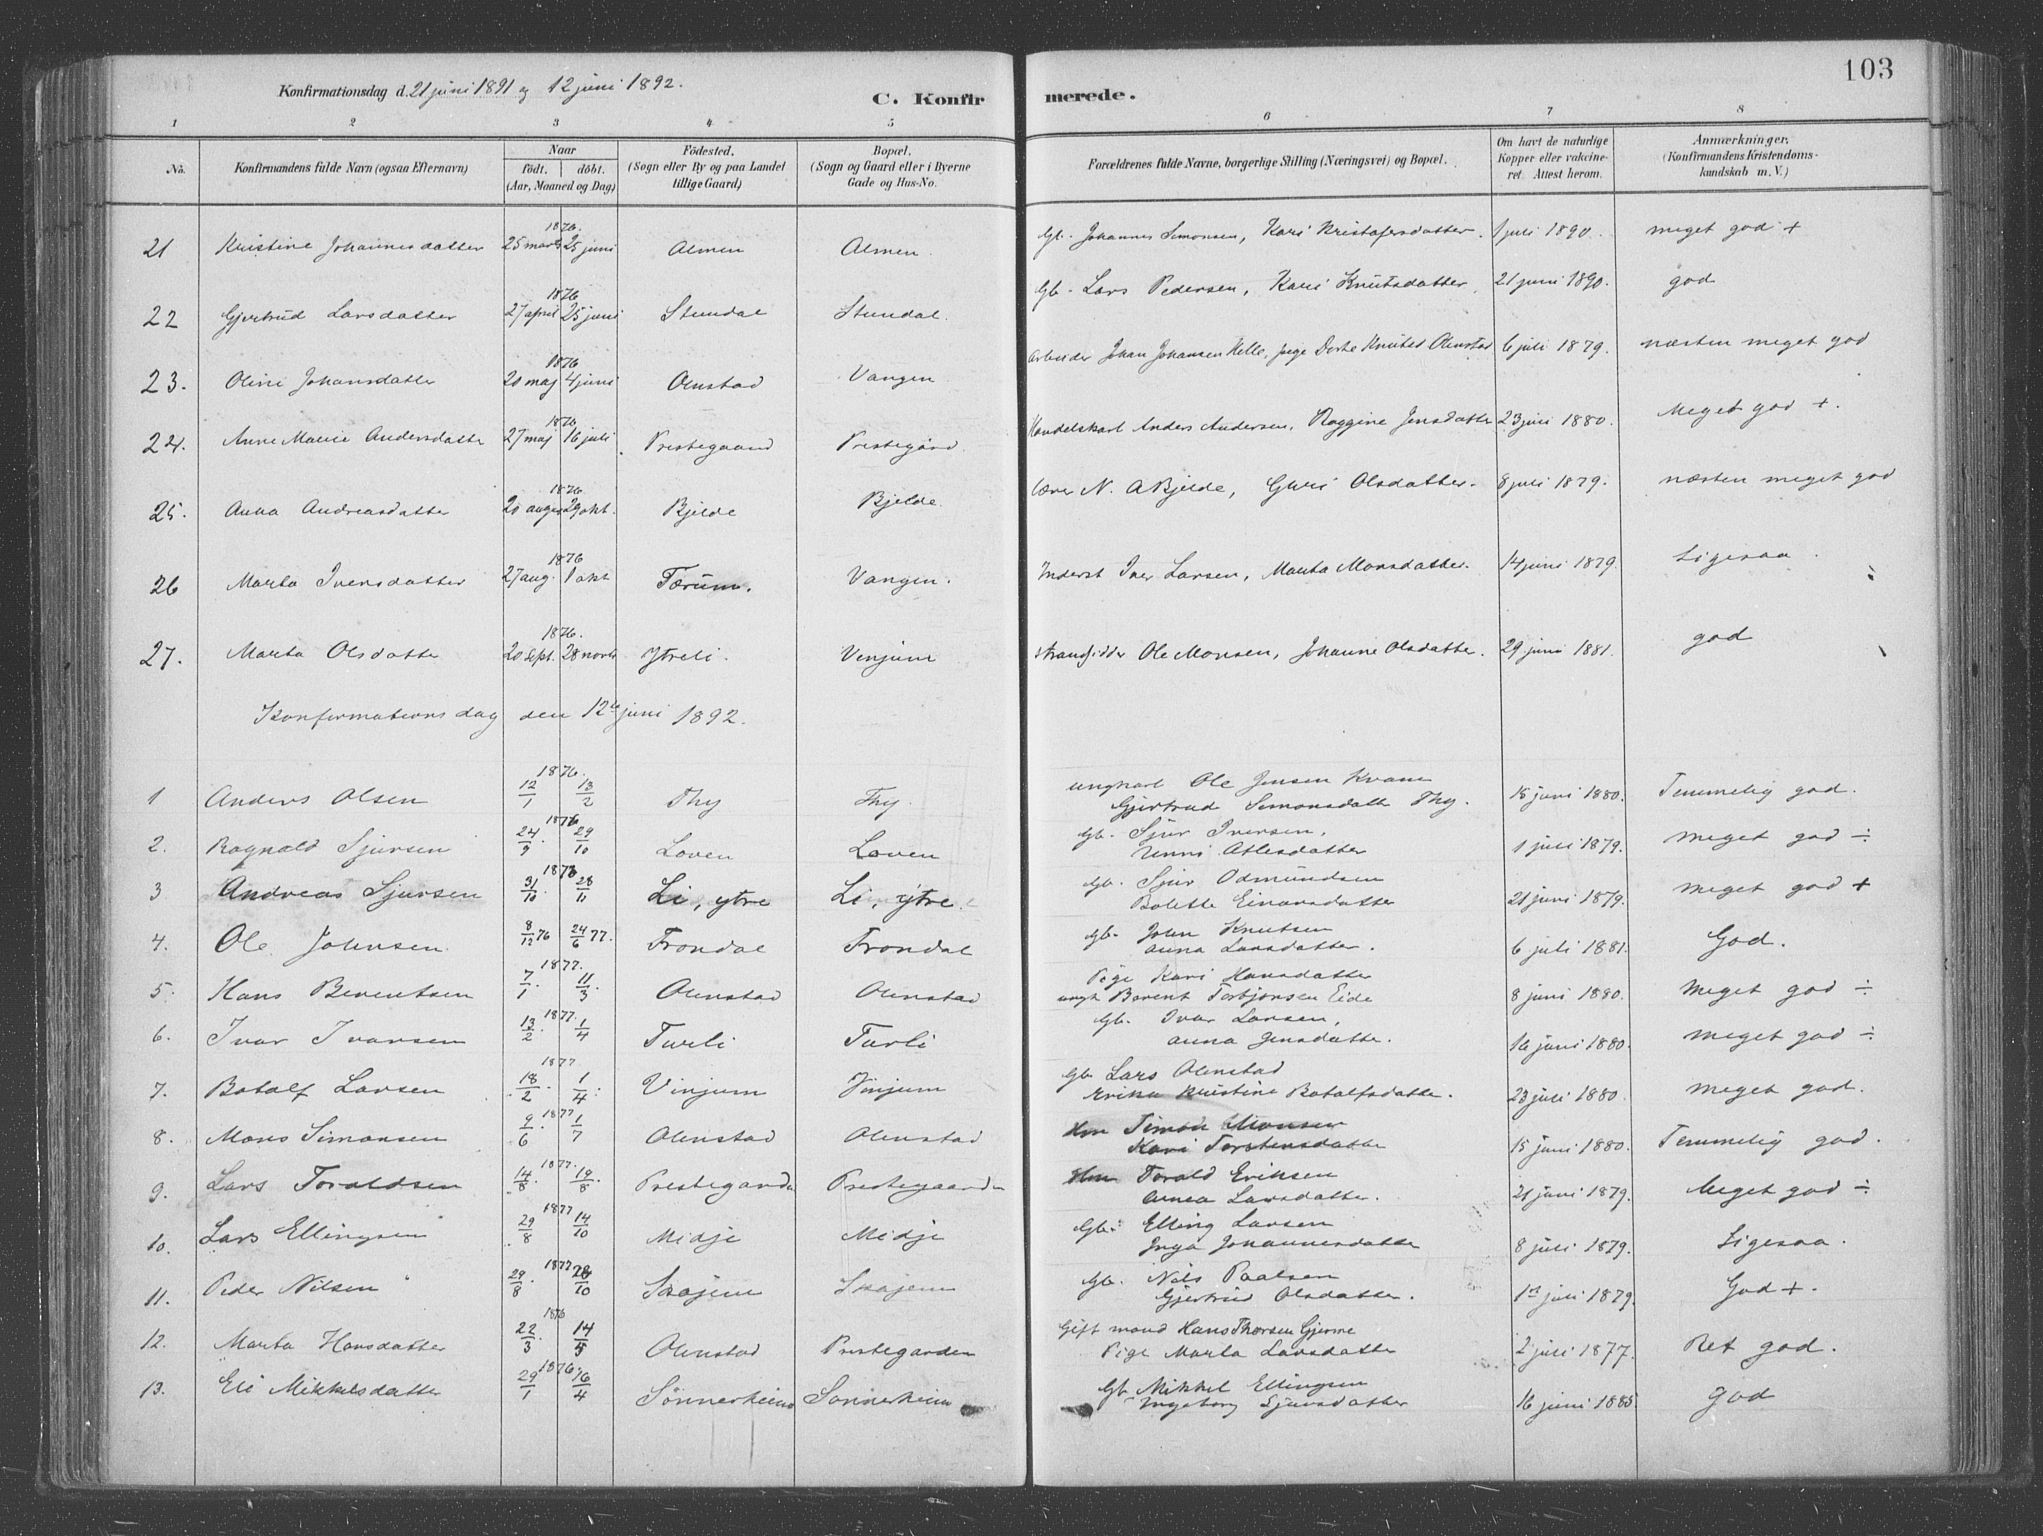 103
Konfirmationsdag d. 21 juni 1891 og 12 juni 1892.
C. Konfirmerede.
1 2 3 4 5 6 7 8
No. Konfirmandens fulde Navn (ogsaa Efternavn) Naar födt. döbt. (Aar, Maaned og Dag) Födested. (Sogn eller By og paa Landet tillige Gaard) Bopæl. (Sogn og Gaard eller i Byerne Gade og Hus-No. Forældrenes fulde Navne, borgerlige Stilling (Næringsvei) og Bopæl. Om havt de naturlige Kopper eller vakcineret. Attest herom. Anmærkninger. (Konfirmandens Kristendomskundskab m. V.)
21 Kristine Johannesdatter 1876. 25 marts 25 juni Almen Almen. Gb. Johannes Simonsen, Kari Kristofersdatter. 1 juli 1890. meget god +
22 Gjertrud Larsdatter 1876 27 april 25 juni Stundal Stundal. Gb. Lars Pedersen, Kari Knutsdatter, 21 juni 1890. god
23. Oline Johansdatter 1876 20 maj 4 juni Olnstad Vangen Arbeider Johan Johansen Helle, pige Dorte Knutsd Olnstad 6 juli 1879. næsten meget god
24. Anne Marie Andersdatter 1876 27 maj 16 juli Prestegaard Prestegård. Handelskarl Anders Andersen, Raggine Jensdatter 23 juni 1880. Meget god +.
25. Anna Andreasdatter 1876 20 august 29 okt. Bjelde Bjelde. lærer N. A Bjelde, Guri Olsdatter. 8 juli 1879. næsten meget god
26 Marta Iversdatter 1876 27 aug. 1 okt Tærum. Vangen. Inderst Iver Larsen, Marta Monsdatter. 14 juni 1879. Ligesaa.
27. Marta Olsdatter 1876. 20 sept. 28 novbr Ytreli. Venjum Strandsidder Ole Monsen, Johanne Olsdatter. 29 juni 1881. god
Konfirmationsdag den 12te juni 1892.
1 Anders Olsen 1876. 12/1 13/2 Thy Thy. ungkarl Ole Jensen Kvame Gjertrud Simonsdatter Thy. 15 juni 1880. Temmelig god.
2. Ragnald Sjursen 1876 24/9. 29/10 Loven Loven Gb. Sjur Iversen, Unni Atlesdatter 1 juli 1879. meget god ÷
3 Andreas Sjursen 1876 31/10. 28/11 Li, ytre Li, ytre. Gb. Sjur Odmundsen Bolette Einarsdatter 21 juni 1879. meget god +
4. Ole Johnsen 8/12 76 24/6 77. Frondal Frondal Gb. John Knutsen Anna Larsdatter. 6 juli 1881. God.
5. Hans Berentsen 1877. 7/1. 11/3. Olnstad Olnstad Pige Kari Hansdatter ungk Berent Torbjørnsen Eide 8 juni 1880. Meget god ÷
6. Ivar Ivarsen 1877. 13/2. 1/4 Turli Turli Gb. Ivar Larsen, Anna Jensdatter. 16 juni 1880. meget god ÷
7. Botolf Larsen 1877 18/2. 1/4. Vinjum Vinjum Gb. Lars Olnstad Erika Kristine Botolfsdatter. 23 juli 1880. meget god.
8. Mons Simonsen 1877. 9/6. 1/7 Olnstad Olnstad Hm Simon Monsen Kari Torstensdatter 15 juni 1880. Temmelig god.
9. Lars Toraldsen 1877. 14/8. 19/8. Prestegarden Prestegaarden Hm Torald Eriksen Anna Larsdatter. 21 juni 1879. Meget god ÷
10. Lars Ellingsen 1877 29/8 14/10 Midje Midje Gb. Elling Larsen Inga Johannesdatter 8 juli 1879. Ligesaa.
11. Peder Nilsen 1877 29/8. 28/10 Skajem Skajem Gb. Nils Paalsen Gjertrud Olsdatter. 1ste juli 1879. God +.
12. Marta Hansdatter 1876 22/3. 14/5 Olnstad Prestegarden Gift mand Hans Thorsen Gjerme Pige Marta Larsdatter 2 juli 1877. Ret god.
13. Eli Mikkelsdatter 1876. 29/1 16/4 Sönnerheim Sönnerheim Gb. Mikkel Ellingsen Ingeborg Sjursdatter 16 juni 1885 god